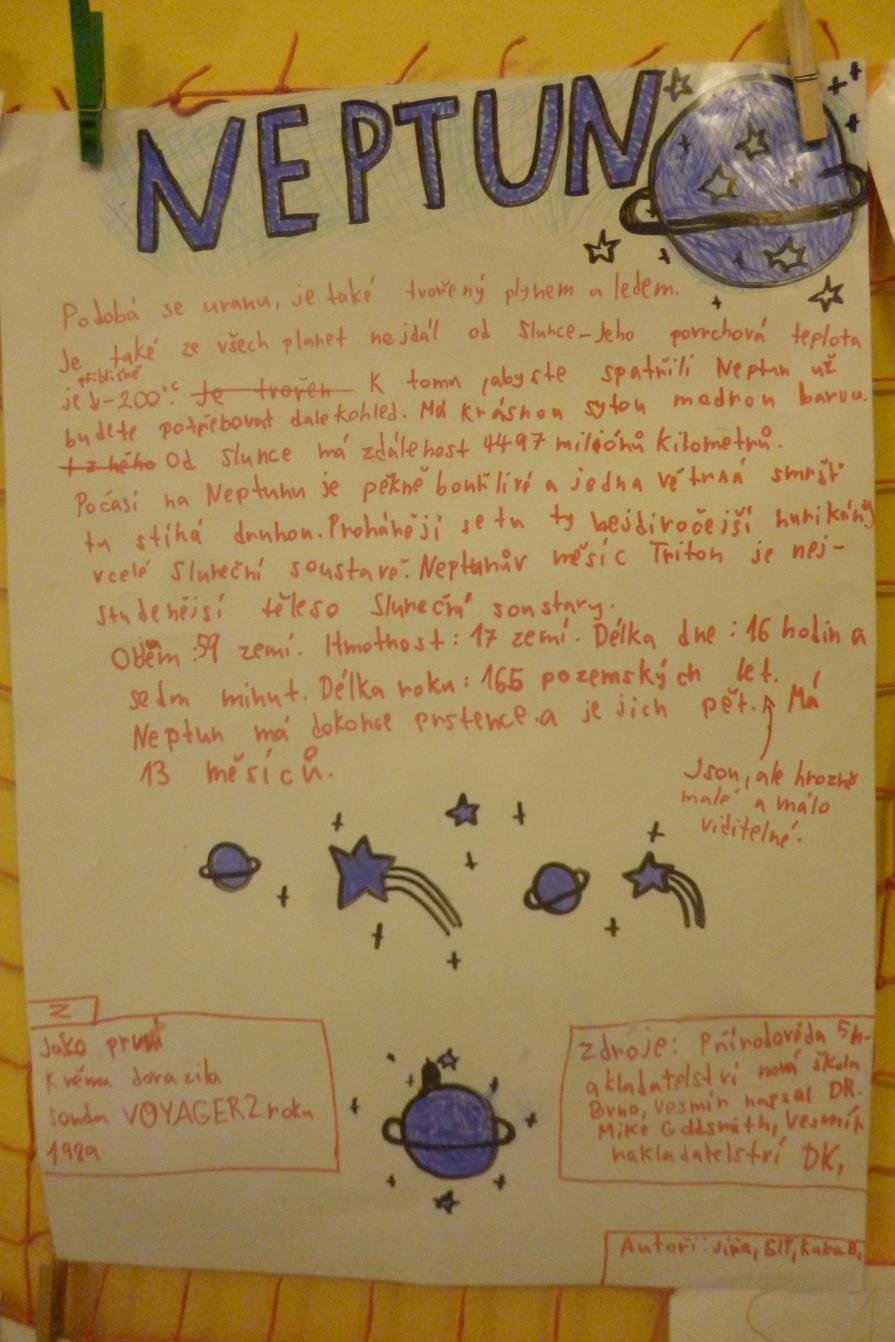 NEPTUN
Podobá se uranu, je také tvořený plynem a ledem.
Je také ze všech planet nejdál od Slunce-Jeho povrchová teplota
přibližně
je -200°C. Je tvořen K tomu ,abyste spatřili Neptun už
budete potřebovat dalekohled. Má krásnou sytou modrou barvu.
Od Slunce má zdálenost 4497 miliónů kilometrů.
Počasí na Neptunu je pěkně bouřlivé a jedna větrná smršť
tu stíhá druhou. Prohánějí se tu ty nejdivočejší hurikány
vcelé Sluneční soustavě. Neptunův měsíc Triton je nej-
studenějsí těleso Sluneční soustavy.
Objem :59 zemí. Hmotnost: 17 zemí. Délka dne : 16 hodin a
sedm minut. Délka roku: 165 pozemských let.
Neptun má dokonce prstence.a je jich pět. Má
13 měsíců.
Json, ale hrozně
malé a málo
viditelné.
Z
Jako první
K němu dorazila
sonda VOYAGER2 roku
1989
Zdroje: Přírodověda 5 n-
akladatelství nová škola
Brno, Vesmír napsal DR.
Mike Goldsmith, Vesmír
nakladatelství DK,
Autoři: Jíťa, Elf, Kuba B,